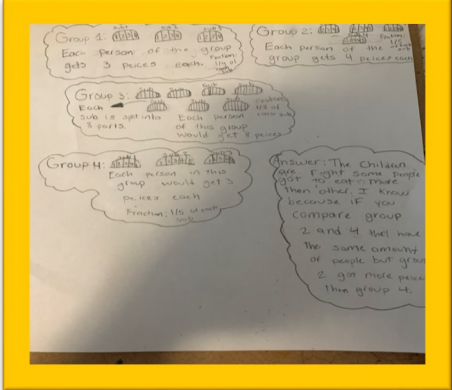 Group 1:
Each Person of the group
gets 3 peices each.
Fraction:
1/4 of
Group 2:
Fraction:
1/5
of each
sub
Each Person of the
group gets 4 peices each
Group 3:
sub
Each
sub is split into
8 parts.
Each Person
of this group
would get 8 peices
Fraction:
1/8 of
each sub
Group 4:
Each person in this
group would get 3
peices each
Fraction: 1/5 of each
sub
Answer: The Children
are right some people
got to eat more
then other. I know
because if you
compare group
2 and 4 they have
the same amount
of people but grou
2 got more peice
then group 4.